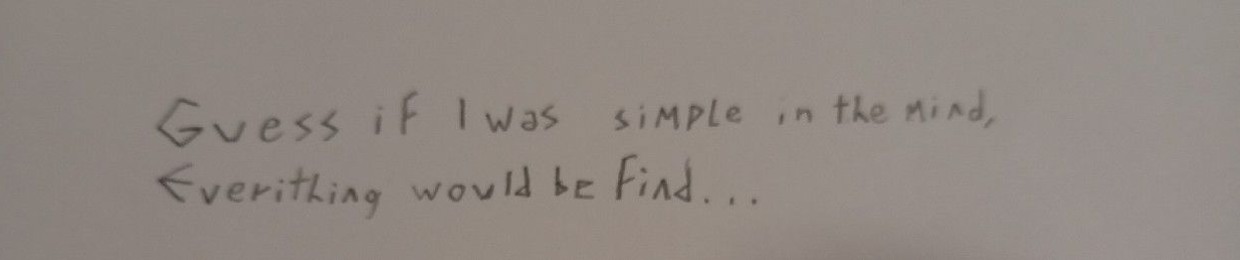 Guess if I was simple in the mind,
Everithing would be find...